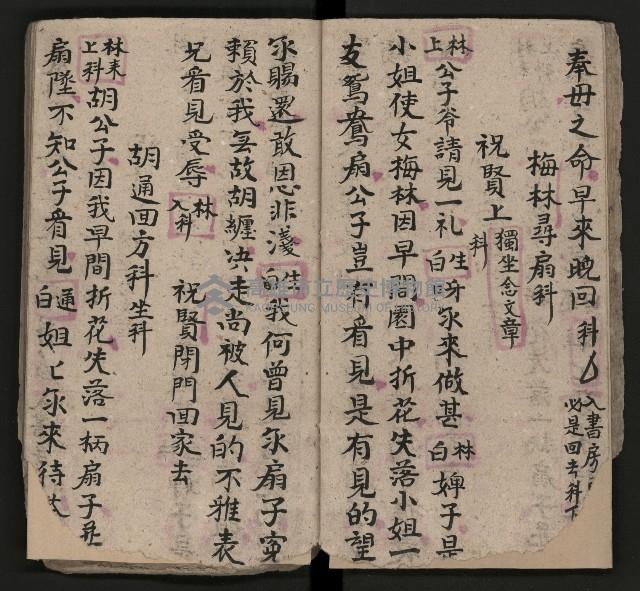 奉母之命早來晚回科 入書房
必是回去科下
梅林尋扇科
祝賢上科 獨坐念文章
林上公子爷請見一礼 生白 你來做甚 林白 婢子是
小姐使女梅林因早間園中折花失落小姐一
友鴛鴦扇公子豈料看見是有見的望
你賜還敢因恩非淺 生白 我何曾見你扇子
賴於我無故胡纏决走尚被人見的不雅表
兄看見受辱 林入科 祝賢閉門回家去
胡通回方科坐科
林未上科 胡公子因我早間折花失落一柄扇子
扇墜不知公子看見 通白 姐匕你來待
高雄市立歷史博物館
KAOHSIUNG MUSEUM OF HISTORY